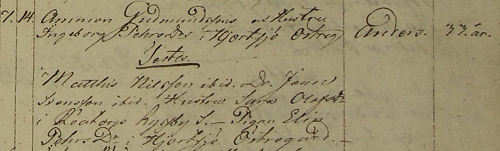 7. 14. Gudmundssons o Hustru
Ingeborg Pehrs Dr i Hjortsjö Östreg. Anders. 33 år.
Testes.
Matthis Nilsson ibid. Dr. Jonas
Svensson ibid. Hustru Sara Olofs Dr
i Ryssby S. – Pigan Elin
Pehrs Dr i Hjortsjö Östregård.–